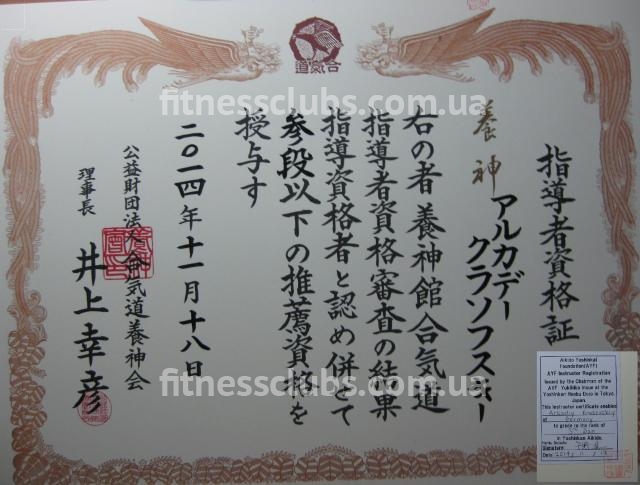 合氣道
指導者資格証
養神
アルカデー
クラソフスキー
右の者養神館合気道
指導者資格審査の結果
指導資格者と認め併せて
参段以下の推薦資格を
授与す
二〇一四年十一月十八日
公益財団法人合気道養神会
理事長 井上幸彦
fitnessclubs.com.ua
fitnessclubs.com.ua
fitnessclubs.com.ua
Aikido Yoshinkai
Foundation(AYF)
AYF Instructor Registration
Issued by the Chairman of the
AYF Yukihiko Inoue at the
Yoshinkan Honbu Dojo in Tokyo,
Japan.
This instructor certificate enables
Arkadiy Krasovskiy
of Germany
to grade to the rank of
Dan
in Yoshinkan Aikido.
Signature:
Date: 2014. 11. 18